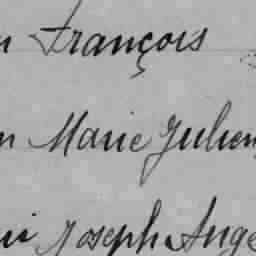 François
Marie Julien
Joseph Ange